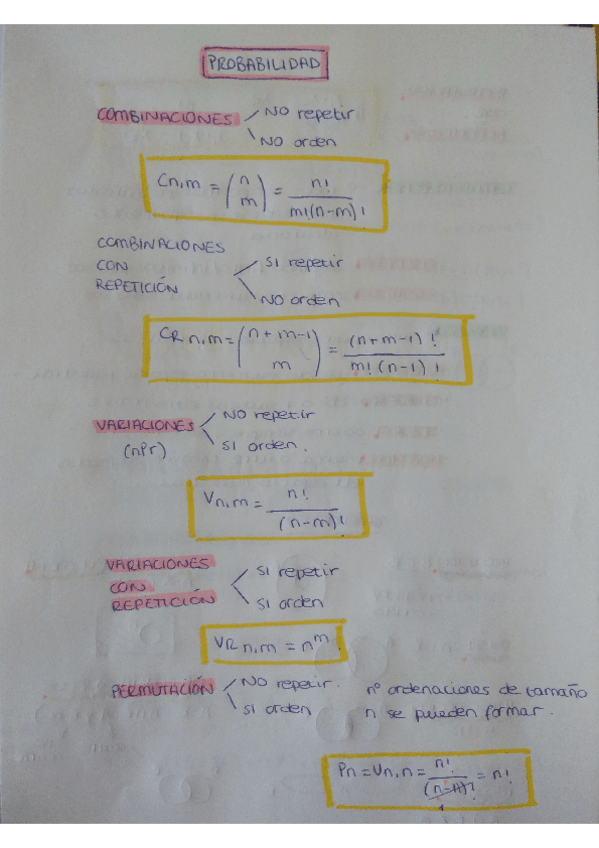 PROBABILIDAD
COMBINACIONES NO repetir
NO orden
Cn,m = (n m) = n! / m!(n-m)!
COMBINACIONES
CON SI repetir
REPETICIÓN NO orden
CR n,m = (n+m-1 m) = (n+m-1)! / m!(n-1)!
VARIACIONES NO repetir
(nPr) SI orden.
Vn,m = n! / (n-m)!
VARIACIONES SI repetir
CON
REPETICIÓN SI orden
VR n,m = n^m
PERMUTACIÓN NO repetir. nº ordenaciones de tamaño
SI orden n se pueden formar.
Pn = Vn,n = n! / (n-n)! = n!
1